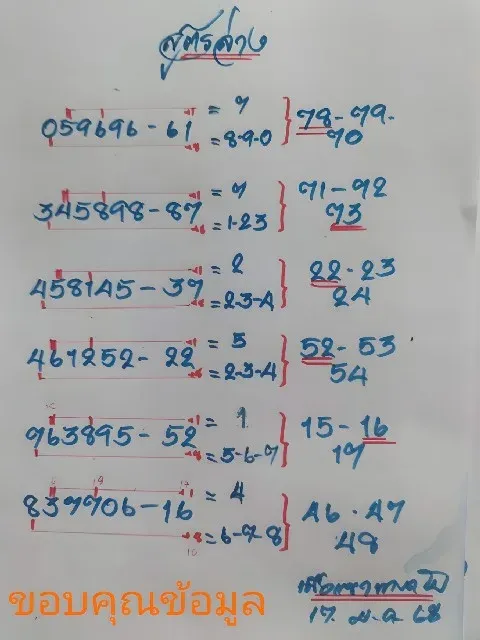 สูตรล่าง
059696-61 = 7 = 8-9-0 78-79- 70
345898-87 = 7 = 1-2-3 71-72 73
458145-37 = 2 = 2-3-4 22-23 24
467252-22 = 5 = 2-3-4 52-53 54
763895-52 = 1 = 5-6-7 15-16 17
837706-16 = 4 = 6-7-8 46-47 48
17. ม.ค 68
ขอบคุณข้อมูล